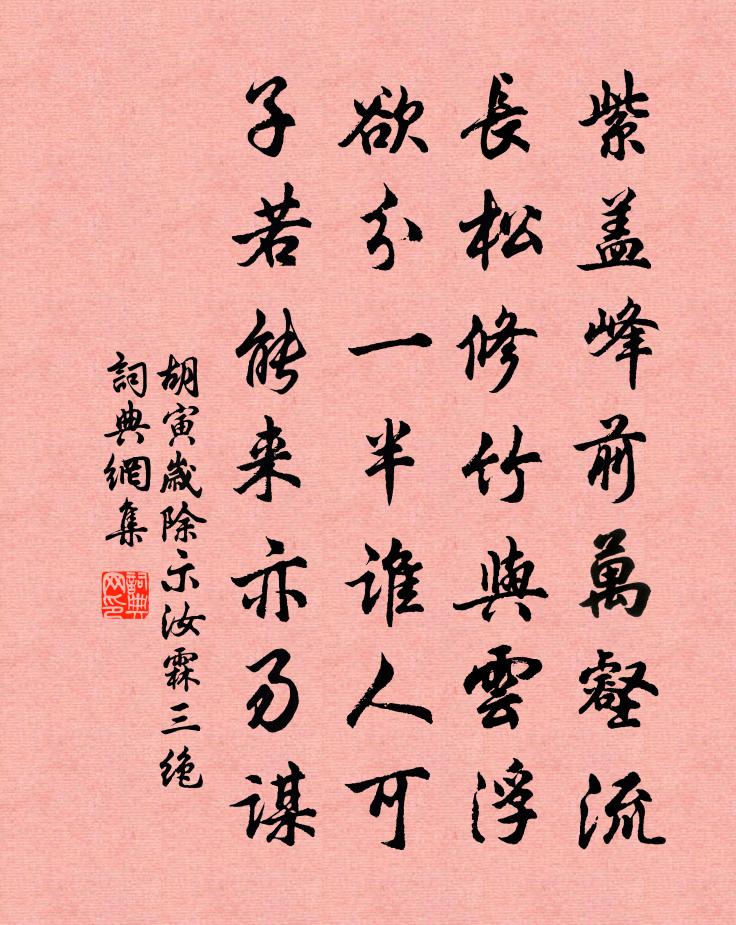 紫盖峰前萬壑流
長松修竹與雲浮
欲分一半誰人可
子若能来亦易謀
胡寅歲除示汝霖三绝
詞典網集
詞典網印